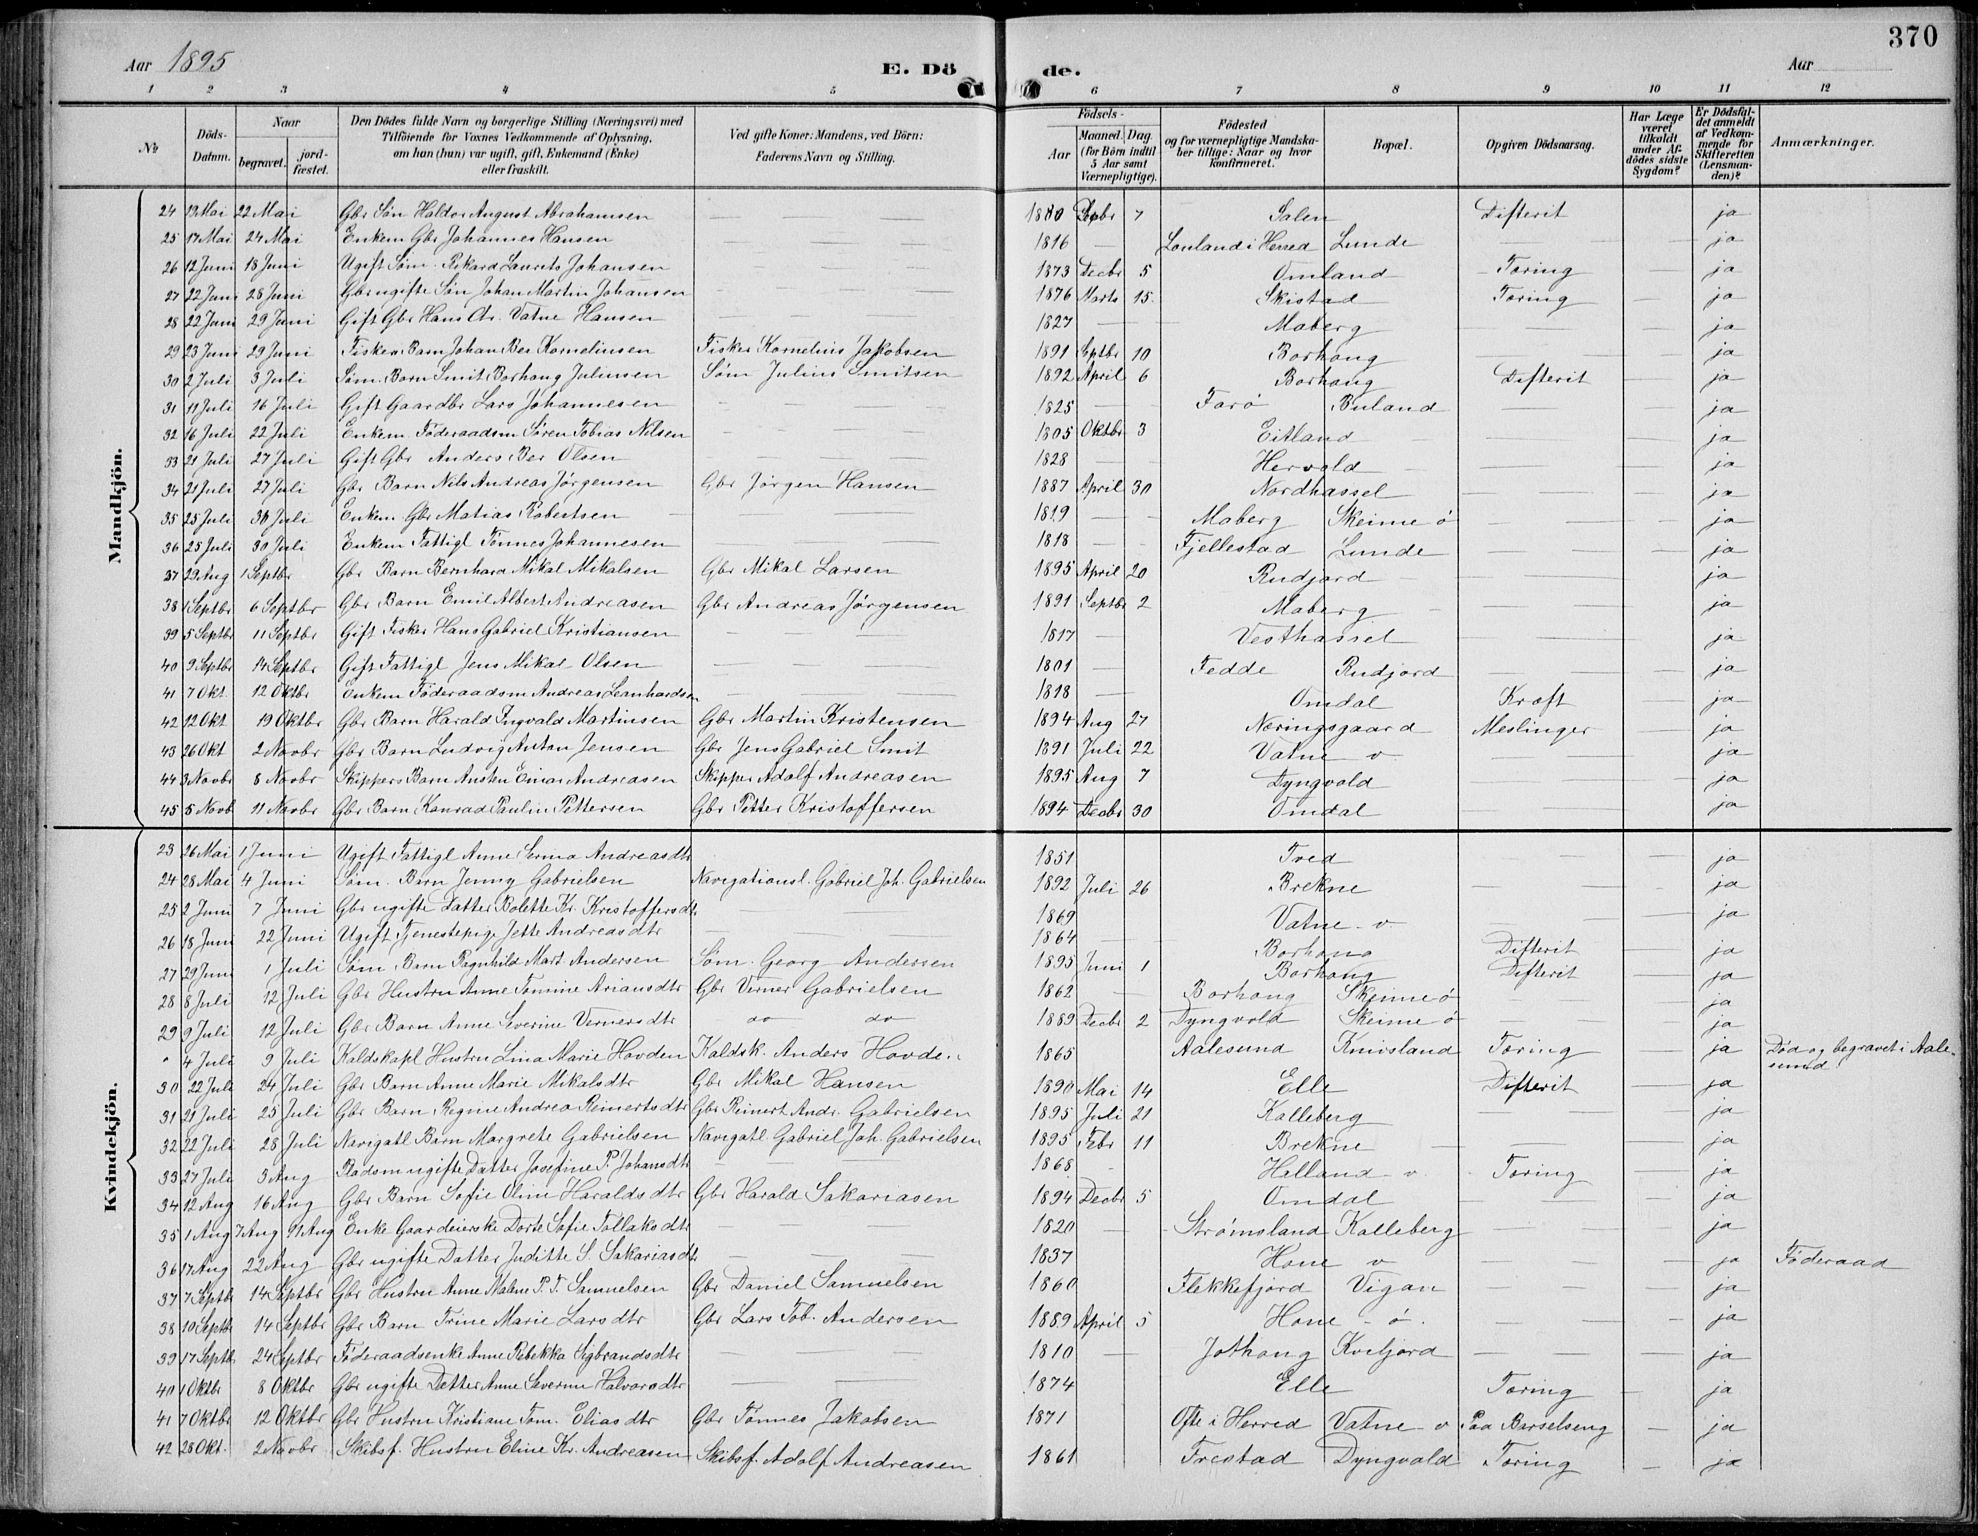 370
Aar 1895
E. Dö de.
Aar
1 2 3 4 5 6 7 8 9 10 11 12
№
Döds-Datum.
Naar begravet. jordfæstet.
Den Dödes fulde Navn og borgerlige Stilling (Næringsvei) med Tilföiende for Voxnes Vedkommende af Oplysning, om han (hun) var ugift, gift, Enkemand (Enke) eller fraskilt.
Ved gifte Koner: Mandens, ved Börn: Faderens Navn og Stilling.
Födsels-
Aar
Maaned. Dag. (for Börn indtil 5 Aar samt Værnepligtige).
Födested og for værnepligtige Mandskaber tillige: Naar og hvor konfirmeret.
Bopæl.
Opgiven Dödsaarsag.
Har Læge været tilkaldt under Afdödes sidste Sygdom?
Er Dödsfaldet anmeldt af Vedkommende for Skifteretten (Lensmanden)?
Anmærkninger.
Mandkjön.
24 13 Mai 22 Mai Gbr Søn Haldor August Abrahamsen — — 1880 Septbr 7 Salen Difterit — ja
25 17 Mai 24 Mai Enkem Gbr Johannes Hansen — — 1816 — Louland i Herred Lunde — — ja
26 12 Juni 18 Juni Ugift Søm. Rikard Laurits Johansen — — 1873 Decbr 5 Omland Tæring — ja
27 22 Juni 28 Juni Gbr ugifte Søn Johan Martin Johansen — — 1876 Marts 15 Skistad Tæring — ja
28 22 Juni 29 Juni Gift Gbr Hans Chr. Vatne Hansen — — 1827 — Maberg — — ja
29 23 Juni 29 Juni Fiskers Barn Johan Ber Kornelinsen Fisker Kornelius Jakobsen 1891 Septbr 10 Borhaug — — ja
30 2 Juli 3 Juli Søm. Barn Smit Borhaug Juliusen Søm Julius Smitsen 1892 April 6 Borhaug Difterit — ja
31 11 Juli 16 Juli Gift Gaardbr Lars Johannesen — — 1825 — Farø Buland — — ja
32 16 Juli 22 Juli Enkem. Føderaadsm Søren Tobias Nilsen — — 1805 Oktbr 3 Eitland — — ja
33 21 Juli 27 Juli Gift Gbr Anders Ber Olsen — — 1828 — Hervold — — ja
34 21 Juli 27 Juli Gbr Barn Nils Andreas Jørgensen Gbr Jørgen Hansen 1887 April 30 Nordhassel — — ja
35 25 Juli 30 Juli Enkem. Gbr Matias Robertsen — — 1819 — Maberg Skeime ø — — ja
36 25 Juli 30 Juli Enkem Fattigl Tønnes Johannesen — — 1818 — Fjellestad Lunde — — ja
37 29 Aug 1 Septbr Gbr Barn Bernhard Mikal Mikalsen Gbr Mikal Larsen 1895 April 20 Rudjord — — ja
38 1 Septbr 6 Septbr Gbr Barn Emil Albert Andreasen Gbr Andreas Jørgensen 1891 Septbr 2 Maberg — — ja
39 5 Septbr 11 Septbr Gift Fisker Hans Gabriel Kristiansen — — 1817 — Vesthassel — — ja
40 9 Septbr 14 Septbr Gift Fattigl Jens Mikal Olsen — — 1801 — Fedde Rudjord — — ja
41 7 Okt. 12 Oktbr Enkem Føderaadsm Andreas Leanhardsen — — 1818 — Omdal Kræft — ja
42 12 Okt 19 Oktbr Gbr Barn Harald Ingvald Martinsen Gbr Martin Kristensen 1894 Aug 27 Næringsgaard Meslinger — ja
43 26 Okt 2 Novbr Gbr Barn Ludvig Anton Jensen Gbr Jens Gabriel Smit 1891 Juli 22 Vatne v — — ja
44 3 Novbr 8 Novbr Skippers Barn Einar Andreasen Skipper Adolf Andreasen 1895 Aug 7 Dyngvold — — ja
45 5 Novb 11 Novbr Gbr Barn Konrad Paulin Pettersen Gbr Petter Kristoffersen 1894 Decbr 30 Omdal — — ja
Kvindekjön.
23 26 Mai 1 Juni Ugift Fattigl Anne Serina Andreasdtr 1851 Tved — — ja
24 28 Mai 4 Juni Søm. Barn Jenny Gabrielsen Navigationsl. Gabriel Joh. Gabrielsen 1892 Juli 26 Brekne — — ja
25 2 Juni 7 Juni Gbr ugifte Datter Bolette Kr. Kristoffersdtr — — 1869 Vatne v — — ja
26 18 Juni 22 Juni Ugift Tjenestepige Jette Andreasdtr 1864 — Borhaug Difterit — ja
27 29 Juni 1 Juli Søm. Barn Ragnhild Mart. Andersen Søm. Georg Andersen 1895 Juni 1 Borhaug Difterit — ja
28 8 Juli 12 Juli Gbr Hustru Anne Tomine Ariansdtr Gbr Verner Gabrielsen 1862 — Borhaug Skeime ø — — ja
29 9 Juli 12 Juli Gbr Barn Anne Severine Vernersdtr do do 1889 Decbr 2 Dyngvold Skeime ø — — ja
" 4 Juli 9 Juli Kaldskapl Hustru Lina Marie Hovden Kaldsk. Anders Hovden 1865 Aalesund Knivsland Tæring — ja Død og begravet i Aalesund
30 22 Juli 24 Juli Gbr Barn Anne Marie Mikalsdtr Gbr Mikal Hansen 1890 Mai 14 Elle Difterit — ja
31 21 Juli 25 Juli Gbr Barn Regine Andrea Reinertsdtr Gbr Reinert Andr. Gabrielsen 1895 Juli 21 Kalleberg — — ja
32 22 Juli 28 Juli Navigatl Barn Margrete Gabrielsen Navigatl. Gabriel Joh. Gabrielsen 1895 Febr 11 Brekne — — ja
33 27 Juli 3 Aug ugifte Datter Josefine P. Johansdtr — 1868 - Helland v. Tæring — ja
34 12 Aug 16 Aug Gbr Barn Sofie Oline Haraldsdtr Gbr Harald Sakariasen 1894 Decbr 5 Omdal — — ja
35 1 Aug 7 Aug 9 Aug Enke Gaardeierske Dorte Sofie Tollaksdtr — — 1820 — Strømsland Kalleberg — — ja
36 17 Aug 22 Aug Gbr ugifte Datter Juditte S. Sakariasdtr — — 1837 Hone v — — ja Føderaad
37 7 Septbr 14 Septbr Gbr Hustru Anne Malene P. T. Samuelsen Gbr Daniel Samuelsen 1860 Flekkefjord Vigan — — ja
38 10 Septbr 14 Septbr Gbr Barn Trine Marie Larsdtr Gbr Lars Tob. Andersen 1889 April 5 Hone - ø. — — ja
39 17 Septb 24 Septbr Føderaadsenke Anne Rebekka Sigbrandsdtr — — 1810 — Jothaug Kviljord — — ja
40 1 Oktbr 8 Oktbr Gbr ugifte Datter Anne Severine Halvorsdtr — — 1874 Elle Tæring — ja
41 7 Oktbr 12 Oktbr Gbr Hustru Kristiane Tom. Eliasdtr Gbr Tønnes Jakobsen 1871 Ofte i Herred Vatne v Paa Barselseng — ja
42 28 Okt. 2 Novbr Skibsf. Hustru Eline Kr. Andreasen Skibsf. Adolf Andreasen 1861 Frestad Dyngvold Tæring — ja